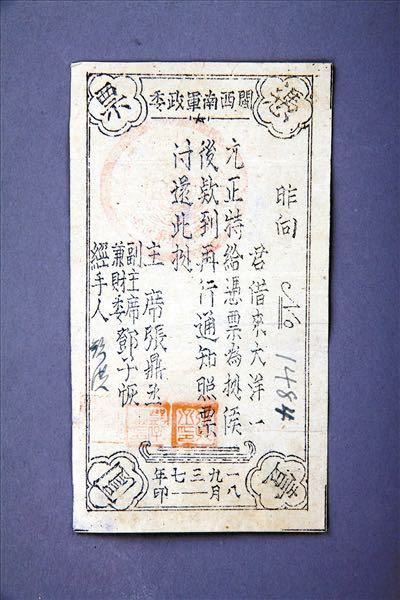 票
閩西南軍政委
昨向
No 1484
君借來大洋一
元正特給憑票為據俟
後款到再行通知照票
付還此據
主席張鼎丞
副主席
兼財委鄧子恢
經手人
壹圓
一九三七年
八月印